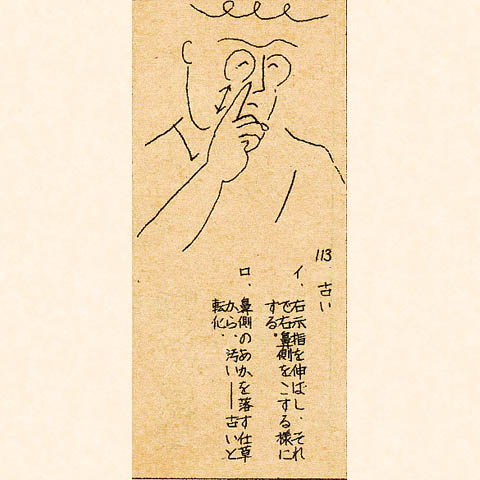 113. 古い
イ、右示指を伸ばし、それ
で右鼻側をこする様に
する。
ロ、鼻側のあかを落す仕草
から、汚い——古いと
転化.